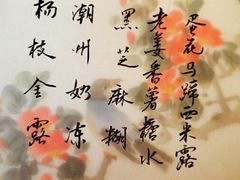 蛋花马蹄西米露
老姜香薯糖水
黑芝麻糊
潮州奶冻
杨枝金露